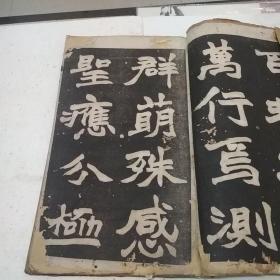 萬行焉測
群萌殊感
聖應分極